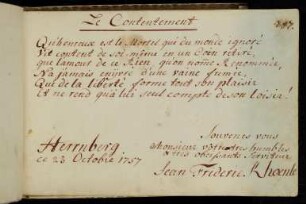 Le Contentement
387.
Qu'heureux est le Mortel qui du monde ignoré
Vit content de soi même en un Coin retiré,
que l'amour de ce Rien, qu'on nome Renommée
N'a jamais enyvré d'une vaine fumée,
Qui de sa liberté forme tout son plaisir
Et ne rend qu'à lui seul compte de son Loisir!
Souvenes vous
Herrnberg
Monsieur votre tres humble
ce 23 Octobre 1757
& tres obeissante Serviteur
Jean Frideric